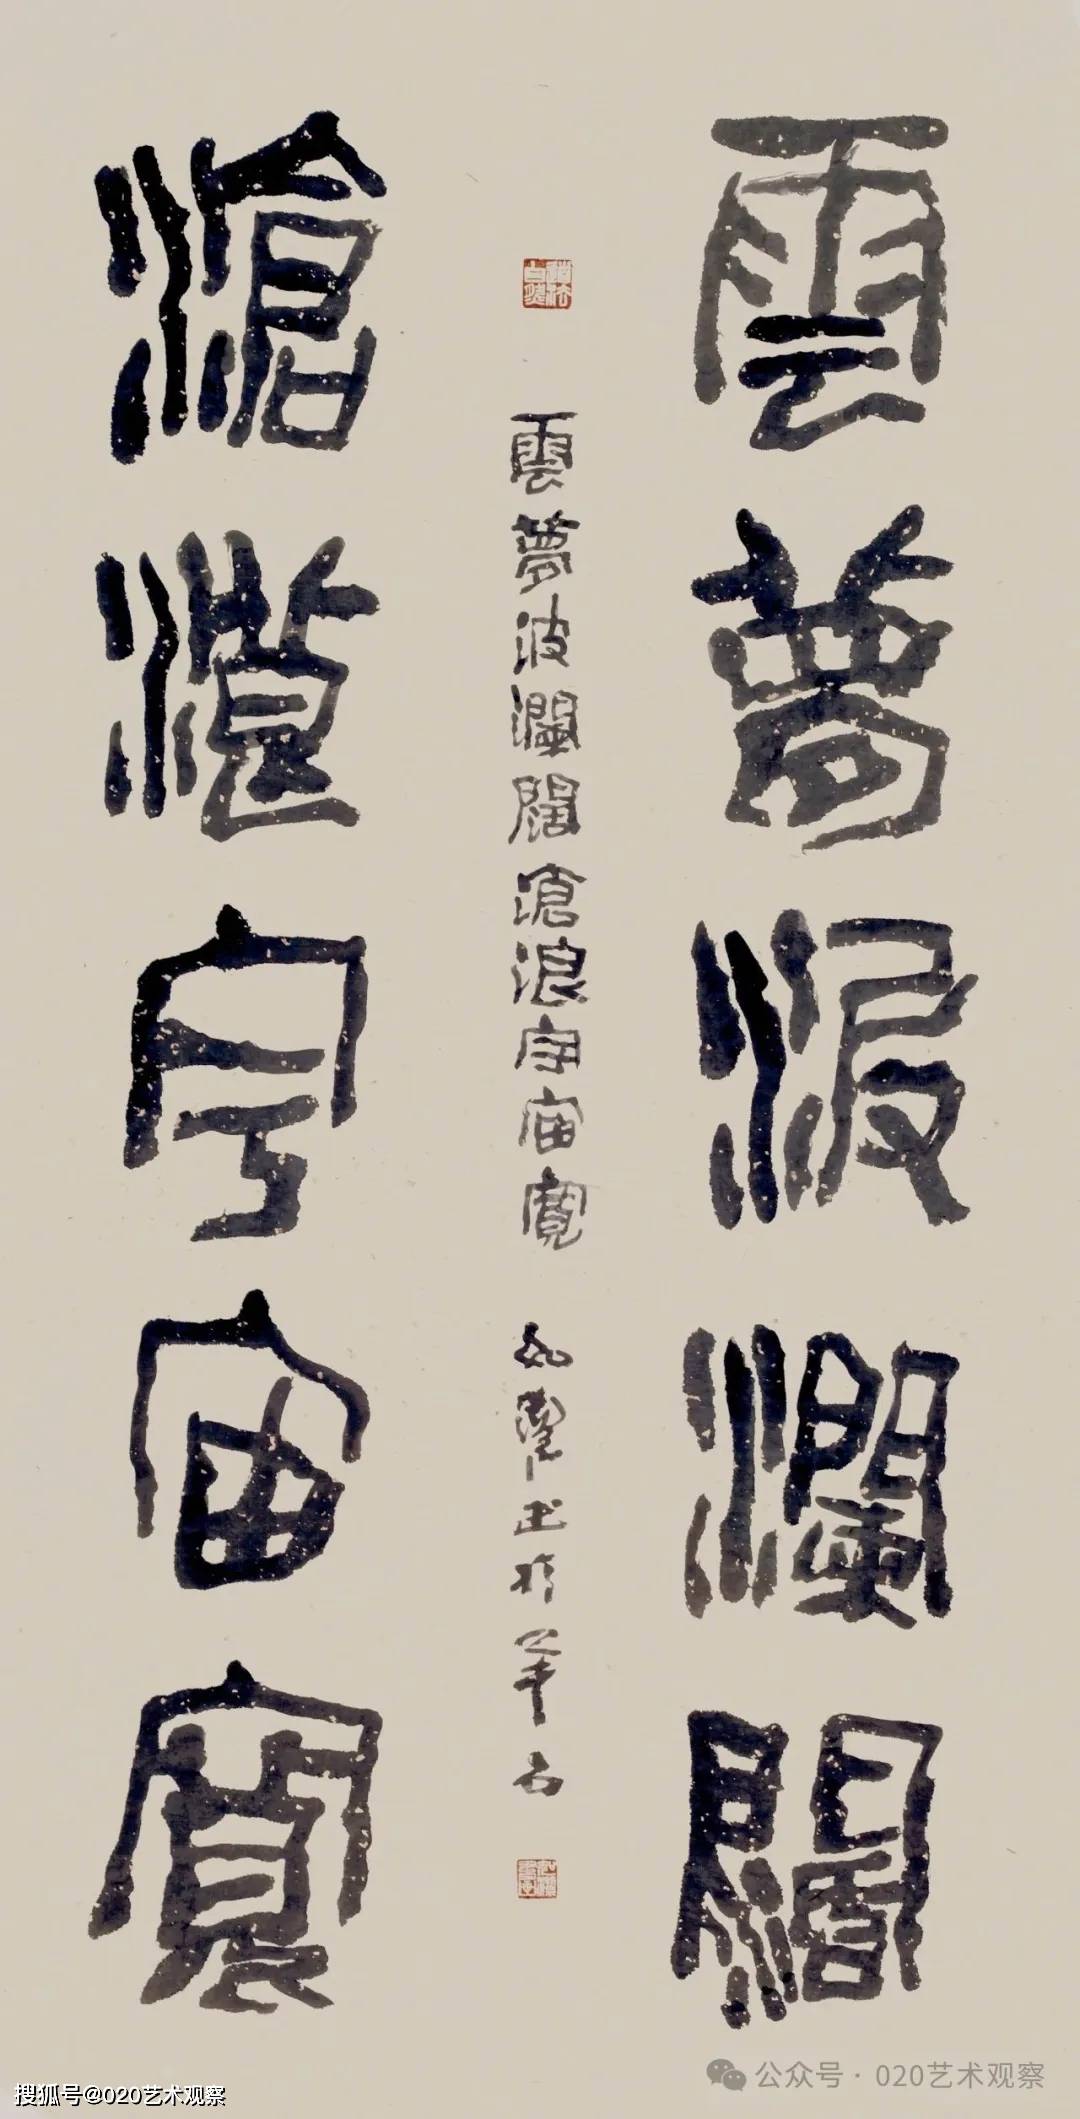 雲夢波瀾闊
滄浪宇宙寬
雲夢波瀾闊滄浪宇宙寬
公众号·020艺术观察
搜狐号@020艺术观察